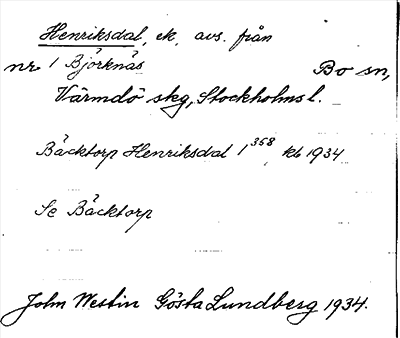 Henriksdal, ek, avs. från
nr 1 Björknäs Bo sn,
Värmdö skg, Stockholms l.
Bäcktorp Henriksdal 1 358 kb 1934
Se Bäcktorp
John Westin Gösta Lundberg 1934.